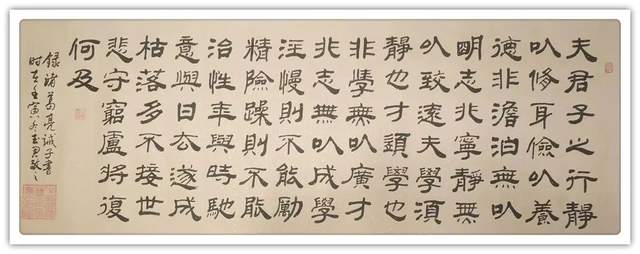 夫君子之行靜
以修身儉以養
德非澹泊無以
明志非寧靜無
以致遠夫學須
靜也才須學也
非學無以廣才
非志無以成學
淫慢則不能勵
精險躁則不能
治性年與時馳
意與日去遂成
枯落多不接世
悲守窮廬將復
何及
錄諸葛亮誡子書
時在壬寅冬